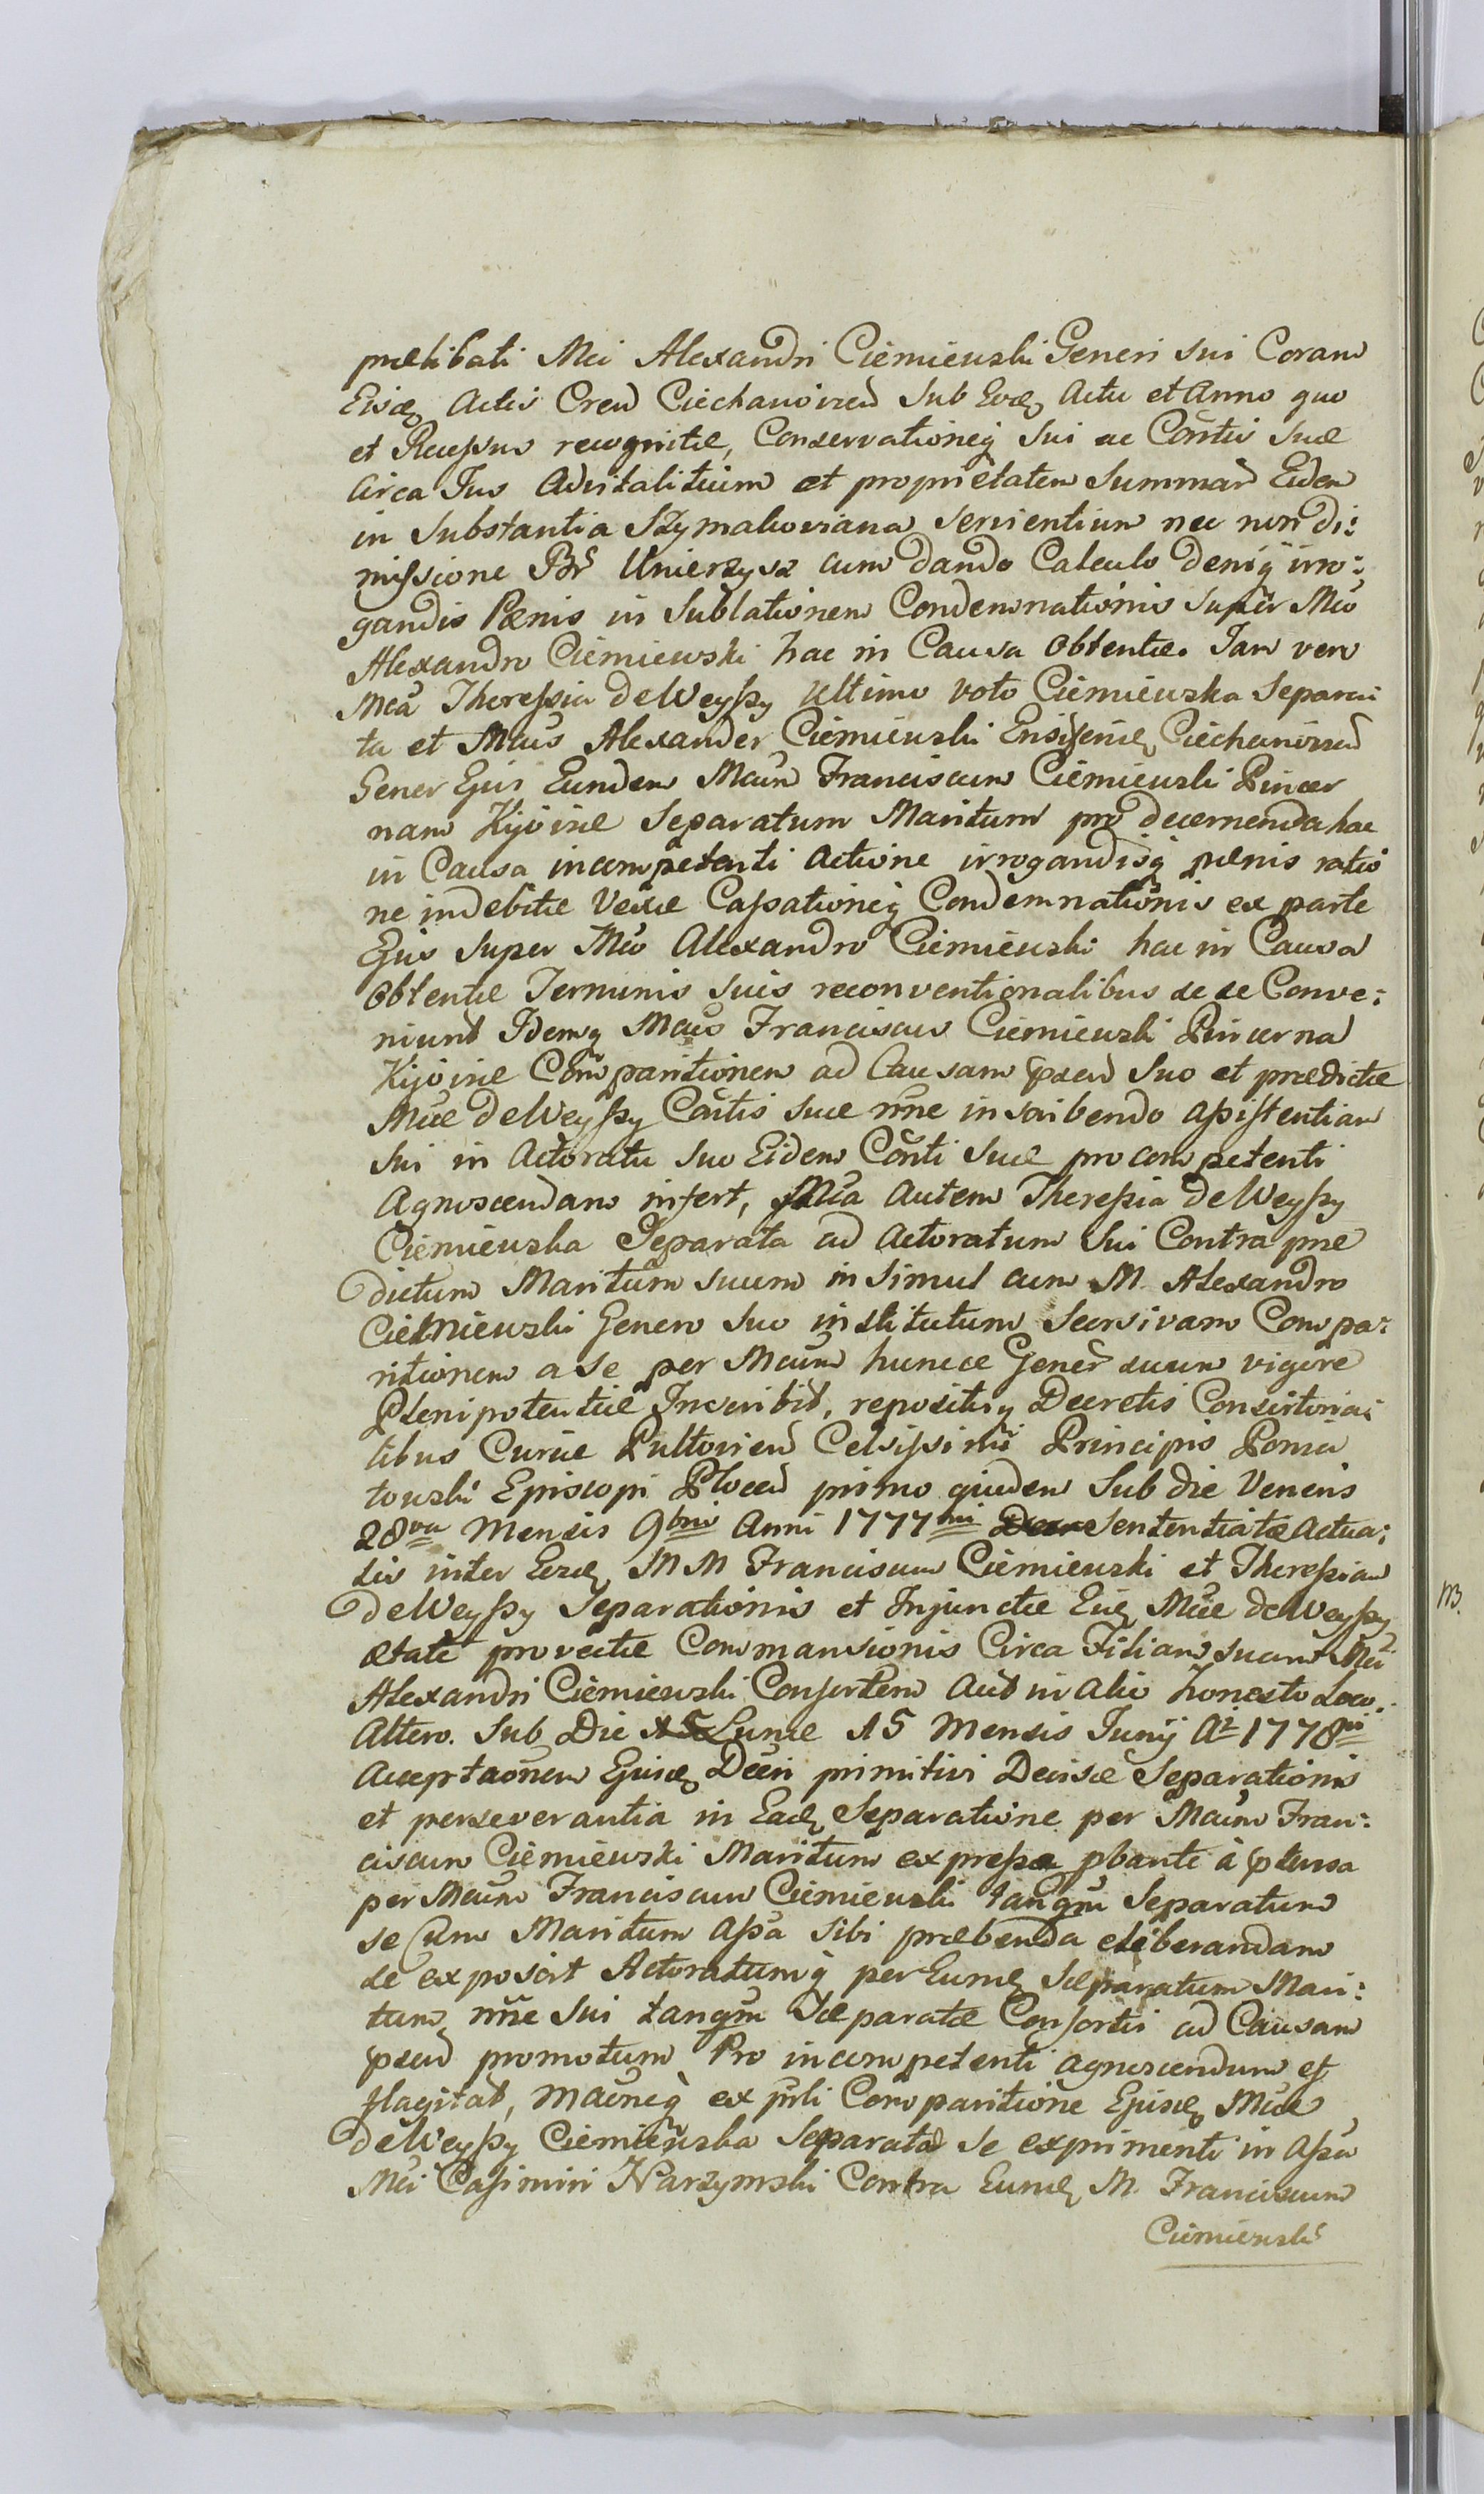 prælibati Mci Alexandri Ciemiewski Generi sui Coram
Eisdę Actis Cren Ciechanovien Sub Eodę Actu et Anno quo
et Recessus recognitæ, Conservationeq̃ Sui ac Contis Suæ
circa Jus Advitalitium et proprietatem Summar Eidem
in Substantia Szymakoviana Servientium nec non di:
missione Bõr Unierzysz cum dando Calculo deniq̃ irro:
gandis Pœnis in Sublationem Condemnationis super Mco
Alexandro Ciemiewski hac in Causa Obtentæ. Jam vero
Mca Theressia de Weyssy Ultimo voto Ciemiewska Separa:
ta et Mcus Alexander Ciemiewski Ensifenid Ciechanovien
Gener Ejus Eundem Mcum Franciscum Ciemiewski Pincer
nam Kijoviæ Separatum Maritum pro decernenda hac
in Causa incompetenti Actione irrogandisq̃ pœnis ratio
ne indebitæ Vexæ Cassationeq̃ Condemnationis ex parte
Ejus super Mco Alexandro Ciemiewski hac in Causa
Obtentæ Terminis suis reconventionalibus se se Conve:
niunt Idemq̃ Mcus Franciscus Ciemiewski Pincerna
Kijoviæ Comparitionem ad Causam psen Suo et prædictæ
Mcæ de Weyssy Contis suæ nñe inscribendo Assistentiam
Sui in Actoratu suo Eidem Conti Suæ pro competenti
Agnoscendam infert, Mca Autem Theressia de Weyssy
Ciemiewska Separata ad Actoratum Sui Contra præ
dictum Maritum suum insimul cum M. Alexandro
Ciemiewski Genero Suo institutum Seorsivam Compa:
ritionem a se per Mcum hunce Gener̃ suum vigore
Plenipotentiæ Inscribit, repositisq̃ Decretis Consistoria:
libus Curiæ Pultovien Celsissimi Principis Ponia
towski Episcopi Plocen primo quidem Sub die Veneris
28va Mensis 9bris Anni 1777mi Sententiatæ Actua:
lis inter Eosdę M M Franciscum Ciemiewski et Theressiam
de Weyssy Separationis et Injunctæ Eidę Mcæ de Weyssy
ætate provectæ Commansionis Circa Filiam suam Mci
Alexandri Ciemiewski Consortem Aut in Alio honesto Loco
Altero. Sub Die Lunæ 15 Mensis Junij Ai 1778vi
Acceptaõnem Ejusdę Decri primitivi Decisæ Separationis
et perseverantia in Eadę Separatione per Mcum Fran:
ciscum Ciemiewski Maritum expresse pbante à
per Mcum Franciscum Ciemiewski tanqm Separatum
se cum Maritum Assa Sibi præbenda eliberandam
se exposcit Actoratumq̃ per Eumdę Separatum Mari:
tum nñe Sui tanqm Separatæ Consortis ad Causam
psen promotum Pro incompetenti agnoscendum
flagitat, ex Comparitione Ejusdę Mcæ
de Weyssy Ciemiewska Separata se exprimenti in Assa
Mci Casimiri Narzymski Contra Eumdę M. Franciscum
Ciemiewski